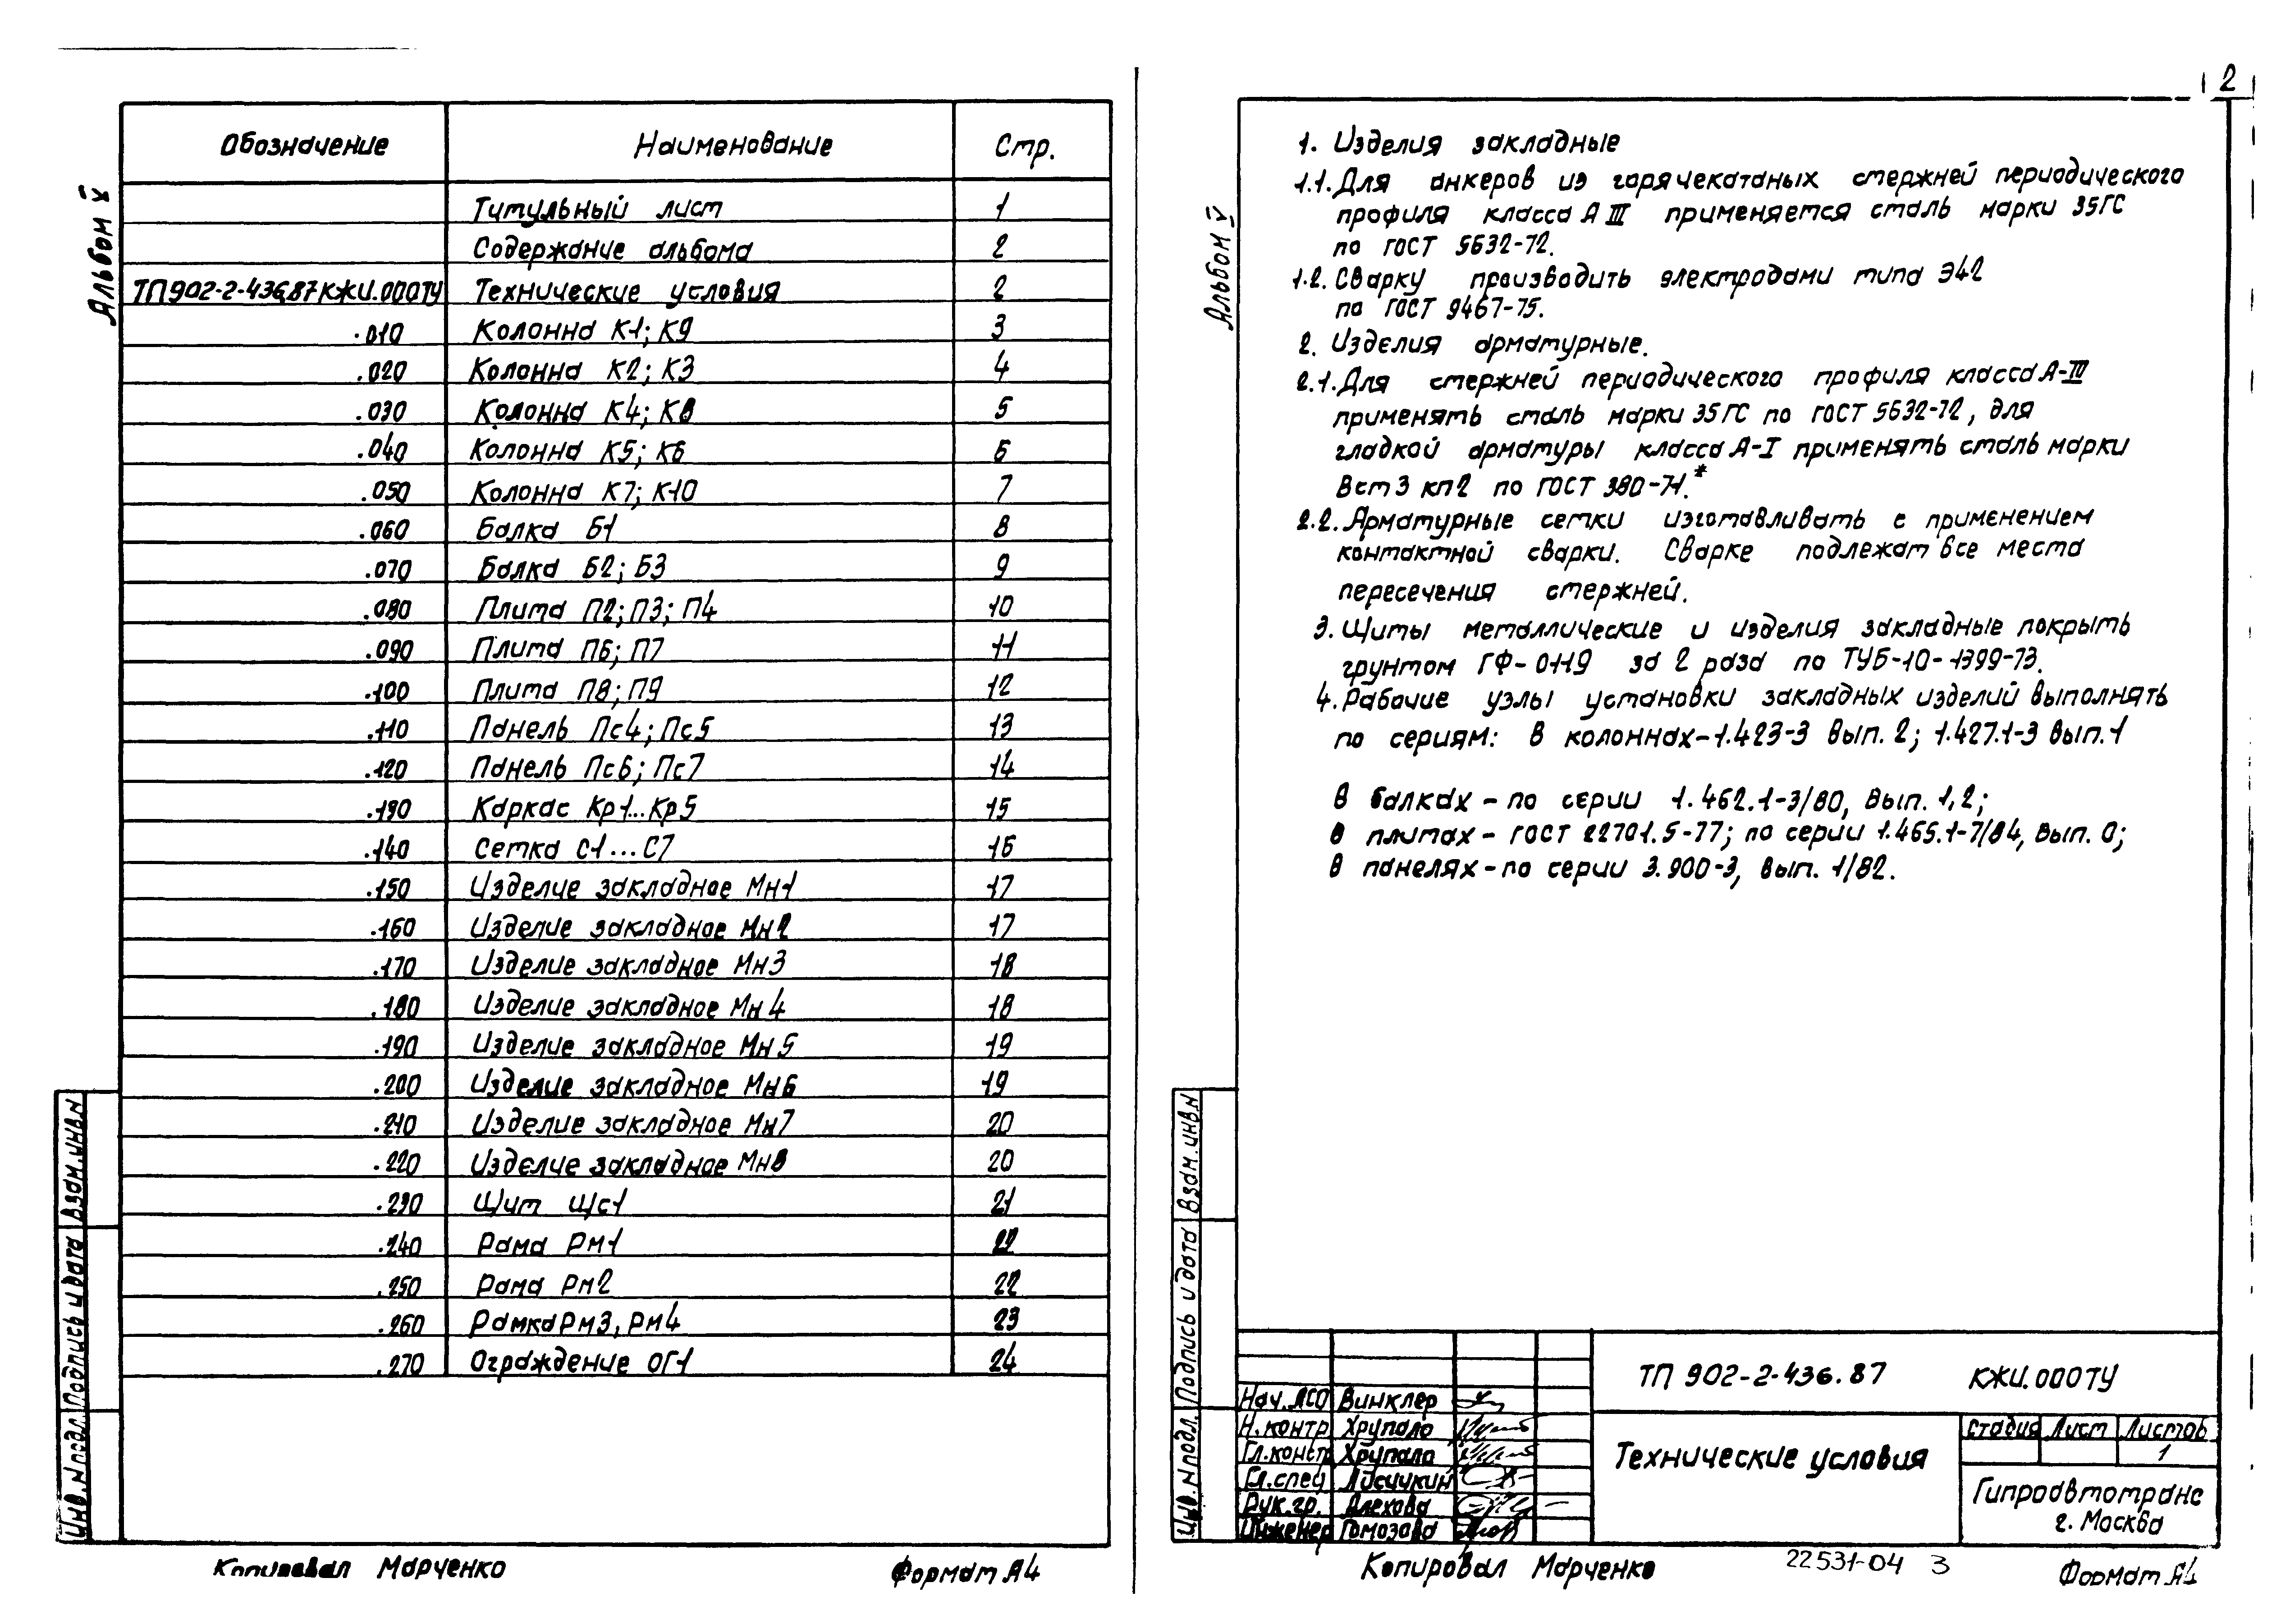 2
Альбом V
Обозначение Наименование Стр.
Титульный лист 1
Содержание альбома 2
ТП902-2-436.87 КЖИ.000ТУ Технические условия 2
.010 Колонна К1; К9 3
.020 Колонна К2; К3 4
.030 Колонна К4; К8 5
.040 Колонна К5; К6 6
.050 Колонна К7; К10 7
.060 Балка Б1 8
.070 Балка Б2; Б3 9
.080 Плита П2; П3; П4 10
.090 Плита П6; П7 11
.100 Плита П8; П9 12
.110 Панель Пс4; Пс5 13
.120 Панель Пс6; Пс7 14
.130 Каркас Кр1...Кр5 15
.140 Сетка С1...С7 16
.150 Изделие закладное Мн1 17
.160 Изделие закладное Мн2 17
.170 Изделие закладное Мн3 18
.180 Изделие закладное Мн4 18
.190 Изделие закладное Мн5 19
.200 Изделие закладное Мн6 19
.210 Изделие закладное Мн7 20
.220 Изделие закладное Мн8 20
.230 Щит Щс1 21
.240 Рама Рм1 22
.250 Рама Рм2 22
.260 Рамка Рм3, Рм4 23
.270 Ограждение ОГ1 24
Инв. N подл. Подпись и дата Взам. инв. N
Копировал Марченко Формат А4
Альбом V
1. Изделия закладные
1.1. Для анкеров из горячекатаных стержней периодического
профиля класса А III применяется сталь марки 35ГС
по ГОСТ 5632-72.
1.2. Сварку производить электродами типа Э42
по ГОСТ 9467-75.
2. Изделия арматурные.
2.1. Для стержней периодического профиля класса А-III
применять сталь марки 35ГС по ГОСТ 5632-72, для
гладкой арматуры класса А-I применять сталь марки
Вст3 кп2 по ГОСТ 380-71.*
2.2. Арматурные сетки изготавливать с применением
контактной сварки. Сварке подлежат все места
пересечения стержней.
3. Щиты металлические и изделия закладные покрыть
грунтом ГФ-0119 за 2 раза по ТУ6-10-1399-73.
4. Рабочие узлы установки закладных изделий выполнять
по сериям: В колоннах-1.423-3 вып. 2; 1.427.1-3 вып. 1
В балках - по серии 1.462.1-3/80, вып. 1,2;
В плитах - ГОСТ 22701.5-77; по серии 1.465.1-7/84, вып. 0;
В панелях - по серии 3.900-3, вып. 1/82.
Инв. N подл. Подпись и дата Взам. инв. N
ТП 902-2-436.87 КЖИ.000ТУ
Нач. АСО Винклер
Н.контр Хрупало
Гл.констр Хрупало
Гл.спец
Рук.гр. Алехова
Инженер Гомозова
Технические условия
Стадия Лист Листов
1
Гипроавтотранс
г. Москва
Копировал Марченко 22531-04 3 Формат А4